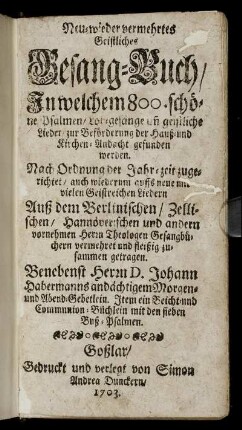 Neu-wieder vermehrtes
Geistliches
Gesang-Buch/
In welchem 800. schö-
ne Psalmen/ Lobgesänge uñ geistliche
Lieder/ zur Beförderung der Hauß- und
Kirchen-Andacht gefunden
werden.
Nach Ordnung der Jahr-zeit zuge-
richtet/ auch wiederum auffs neue mit
vielen Geistreichen Liedern
Auß dem Berlinischen/ Zelli-
schen/ Hannöverschen und andern
vornehmen Herrn Theologen Gesangbü-
chern vermehret und fleißig zu-
sammen getragen.
Benebenst Herrn D. Johann
Habermanns andächtigem Morgen-
und Abend-Gebetlein. Item ein Beicht und
Communion-Büchlein mit den sieben
Buß-Psalmen.
Goßlar/
Gedruckt und verlegt von Simon
Andrea Dunckern/
1703.